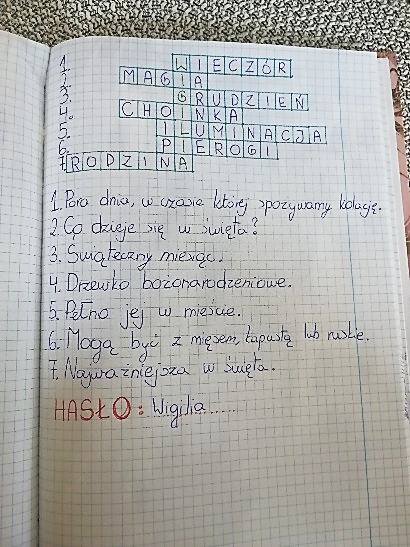 1. WIECZÓR
2. MAGIA
3. GRUDZIEŃ
4. CHOINKA
5. ILUMINACJA
6. PIEROGI
7. RODZINA
1. Pora dnia, w czasie której spożywamy kolację.
2. Co dzieje się w święta?
3. Świąteczny miesiąc.
4. Drzewko bożonarodzeniowe.
5. Pełno jej w mieście.
6. Mogą być z mięsem, kapustą lub ruskie.
7. Najważniejsza w święta.
HASŁO: Wigilia......